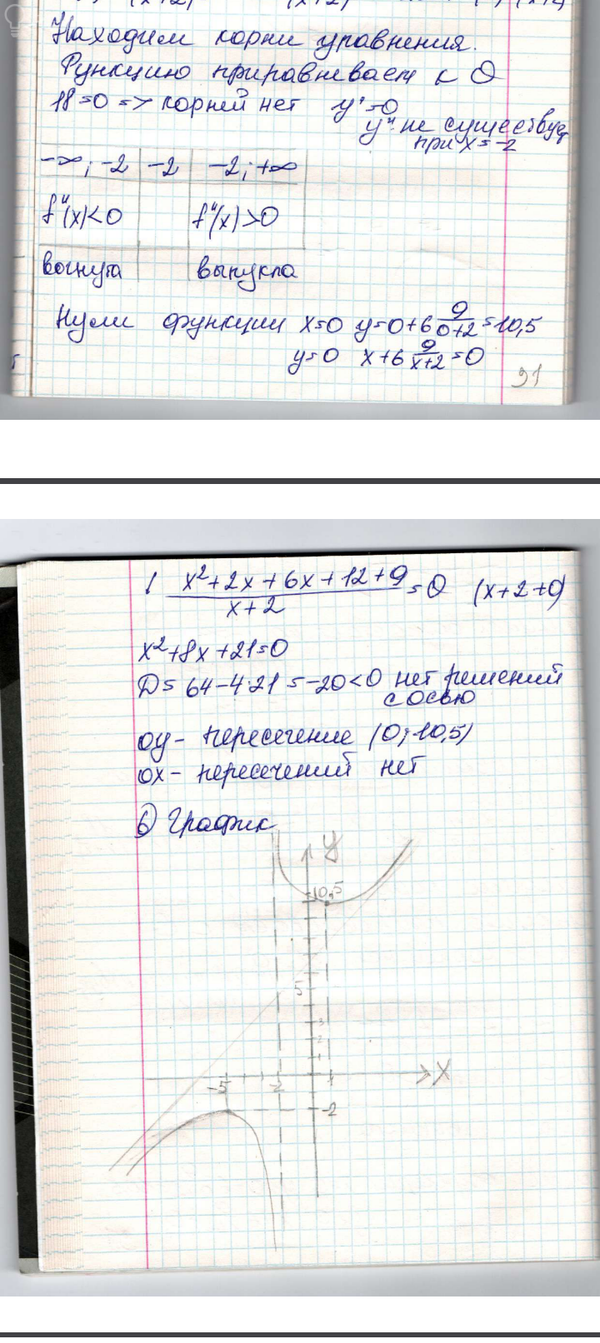 Находим корни уравнения.
Функцию приравниваем к 0
18=0 => корней нет y'=0
y" не существует
при x=-2
-∞; -2 -2 -2; +∞
f"(x)<0 f"(x)>0
вогнута выпукла
Нули функции x=0 y=0+6 9/0+2=10,5
y=0 x+6 9/x+2=0
91
x²+2x+6x+12+9/x+2=0 (x+2≠0)
x²+8x+21=0
D=64-4·21=-20<0 нет решений
с осью
oy- пересечение (0; 10,5)
ox- пересечений нет
6) График
y
10,5
5
3
2
1
-5 -2 1 X
-2